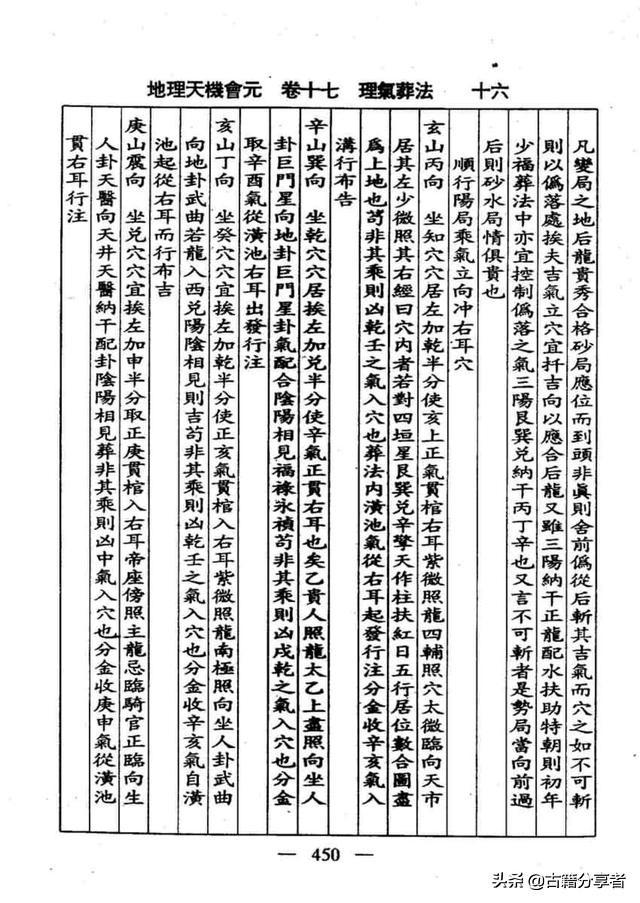 地理天機會元　卷十七　理氣葬法　十六
凡變局之地后龍貴秀合格砂局應位而到頭非眞則舍前僞從后斬其吉氣而穴之如不可斬
則以僞落處挨夫吉氣立穴宜扦吉向以應合后龍又雖三陽納干正龍配水扶助特朝則初年
少福葬法中亦宜控制僞落之氣三陽艮巽兌納干丙丁辛也又言不可斬者是勢局當向前過
后則砂水局情俱貴也
順行陽局乘氣立向冲右耳穴
玄山丙向　坐知穴穴居左加乾半分使亥上正氣貫棺右耳紫微照龍四輔照穴太微臨向天市
居其左少微照其右經曰穴内者若對四垣星艮巽兌辛擎天作柱扶紅日五行居位數合圖盡
爲上地也苟非其乘則凶乾壬之氣入穴也葬法内潢池氣從右耳起發行注分金收辛亥氣入
溝行布告
辛山巽向　坐乾穴穴居挨左加兌半分使辛氣正貫右耳也矣乙貴人照龍太乙上盡照向坐人
卦巨門星向地卦巨門星卦氣配合陰陽相見福祿氷禎苟非其乘則凶戌乾之氣入穴也分金
取辛酉氣從潢池右耳出發行注
亥山丁向　坐癸穴穴宜挨左加乾半分使正亥氣貫棺入右耳紫微照龍南極照向坐人卦武曲
向地卦武曲若龍入西兌陽陰相見則吉苟非其乘則凶乾壬之氣入穴也分金收辛亥氣自潢
池起從右耳而行布吉
庚山震向　坐兌穴穴宜挨左加申半分取正庚貫棺入右耳帝座傍照主龍忌臨騎官正臨向生
人卦天醫向天井天醫納干配卦陰陽相見葬非其乘則凶中氣入穴也分金收庚申氣從潢池
貫右耳行注
— 450 —
头条 @古籍分享者